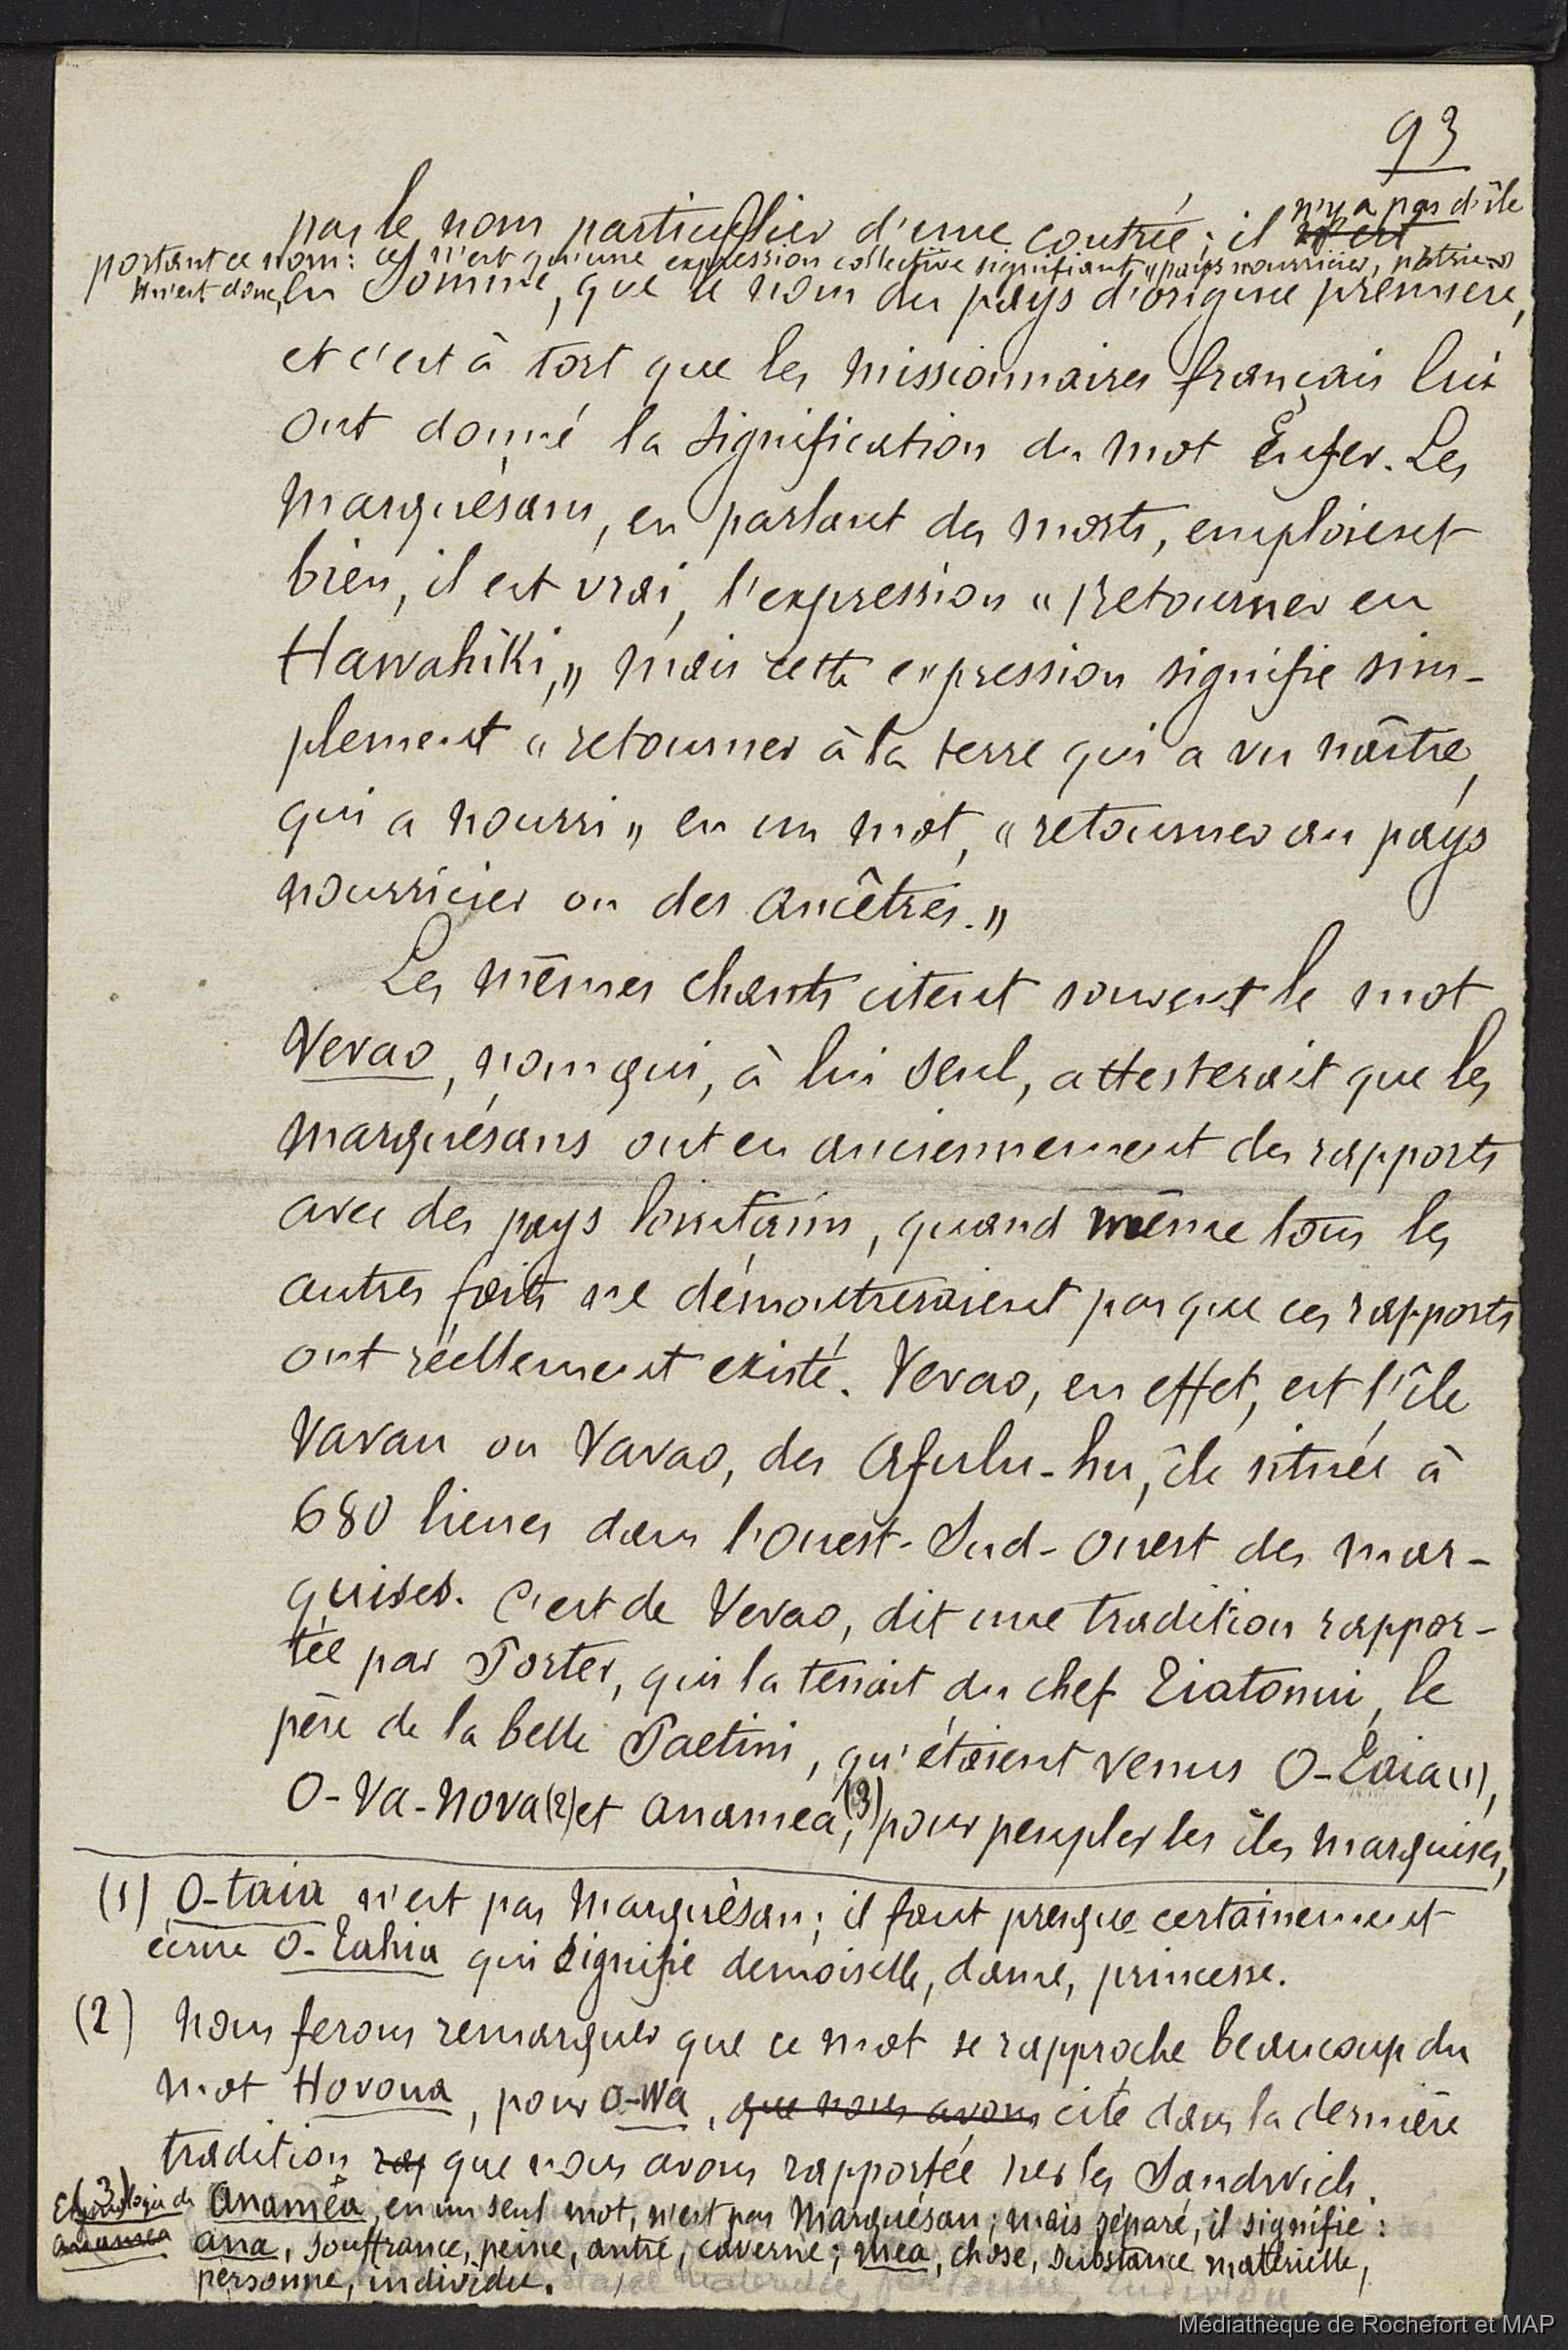 93
pas le nom particulier d'une contrée; il n'y a pas d'île
portant ce nom: ce n'est qu'une expression collective signifiant "pays nourricier, patrie"
Il n'est donc, en somme, que le nom du pays d'origine première,
et c'est à tort que les missionnaires français lui
ont donné la signification du mot Enfer. Les
Marquésans, en parlant des morts, emploient
bien, il est vrai, l'expression "retourner en
Hawahiki," mais cette expression signifie sim-
plement "retourner à la terre qui a vu naître,
qui a nourri" en un mot, "retourner au pays
nourricier ou des ancêtres."
Les mêmes chants citent souvent le mot
Vevao, nom qui, à lui seul, attesterait que les
Marquésans ont eu anciennement des rapports
avec des pays lointains, quand même tous les
autres faits ne démontreraient pas que ces rapports
ont réellement existé. Vevao, en effet, est l'île
Vavau ou Vavao, des Afulu-hu, île située à
680 lieues dans l'Ouest-Sud-Ouest des Mar-
quises. C'est de Vevao, dit une tradition rappor-
tée par Porter, qui la tenait du chef Eiatomi, le
père de la belle Paetini, qu'étaient venus O-Taia (1),
O-Va-Nova (2) et Anamea, (3) pour peupler les îles Marquises,
(1) O-taia n'est pas Marquésan; il faut presque certainement
écrire O-Tahia qui signifie demoiselle, dame, princesse.
(2) Nous ferons remarquer que ce mot se rapproche beaucoup du
mot Hovoua, pour O-Wa, que nous avons cité dans la dernière
tradition rap que nous avons rapportée sur les Sandwich.
(3)
Etymologie de Anaméa, en un seul mot, n'est pas Marquésan; mais séparé, il signifie:
Anamea ana, souffrance, peine, antre, caverne; mea, chose, substance matérielle,
personne, individu.
Médiathèque de Rochefort et MAP